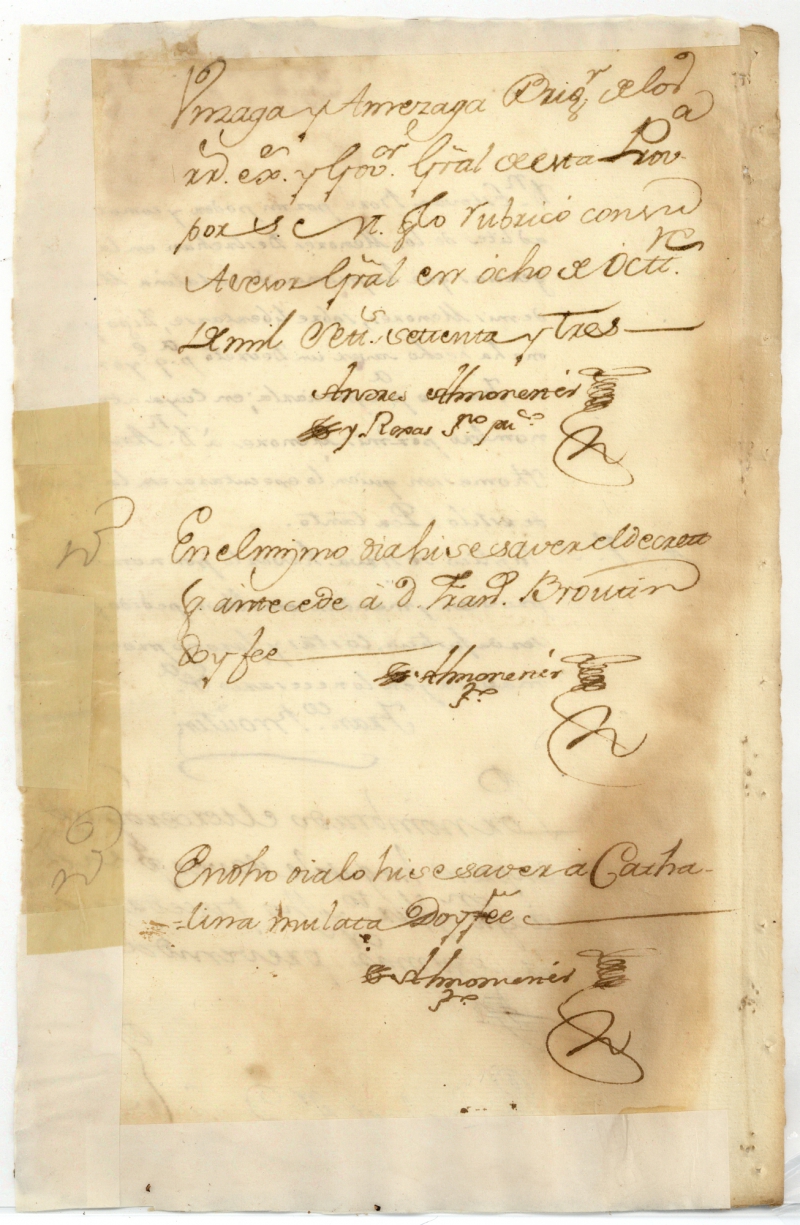 Vnzaga y Amezaga Brigr. de los
rr.s ex.s y Govor. Gral de esta Prova
por S. M. q lo rubricó con su
Asesor Gral en ócho de Octtre.
de mil Setts. settenta y Tres
Andres Almonester
y Roxas sno puco
En el mismo dia hise saver el decreto
q. antecede á d. Franco. Broutin
Doy fee
Almonester
sno
En dho dia lo hise saver á Catha-
-lina mulata Doy fee
Almonester
sno